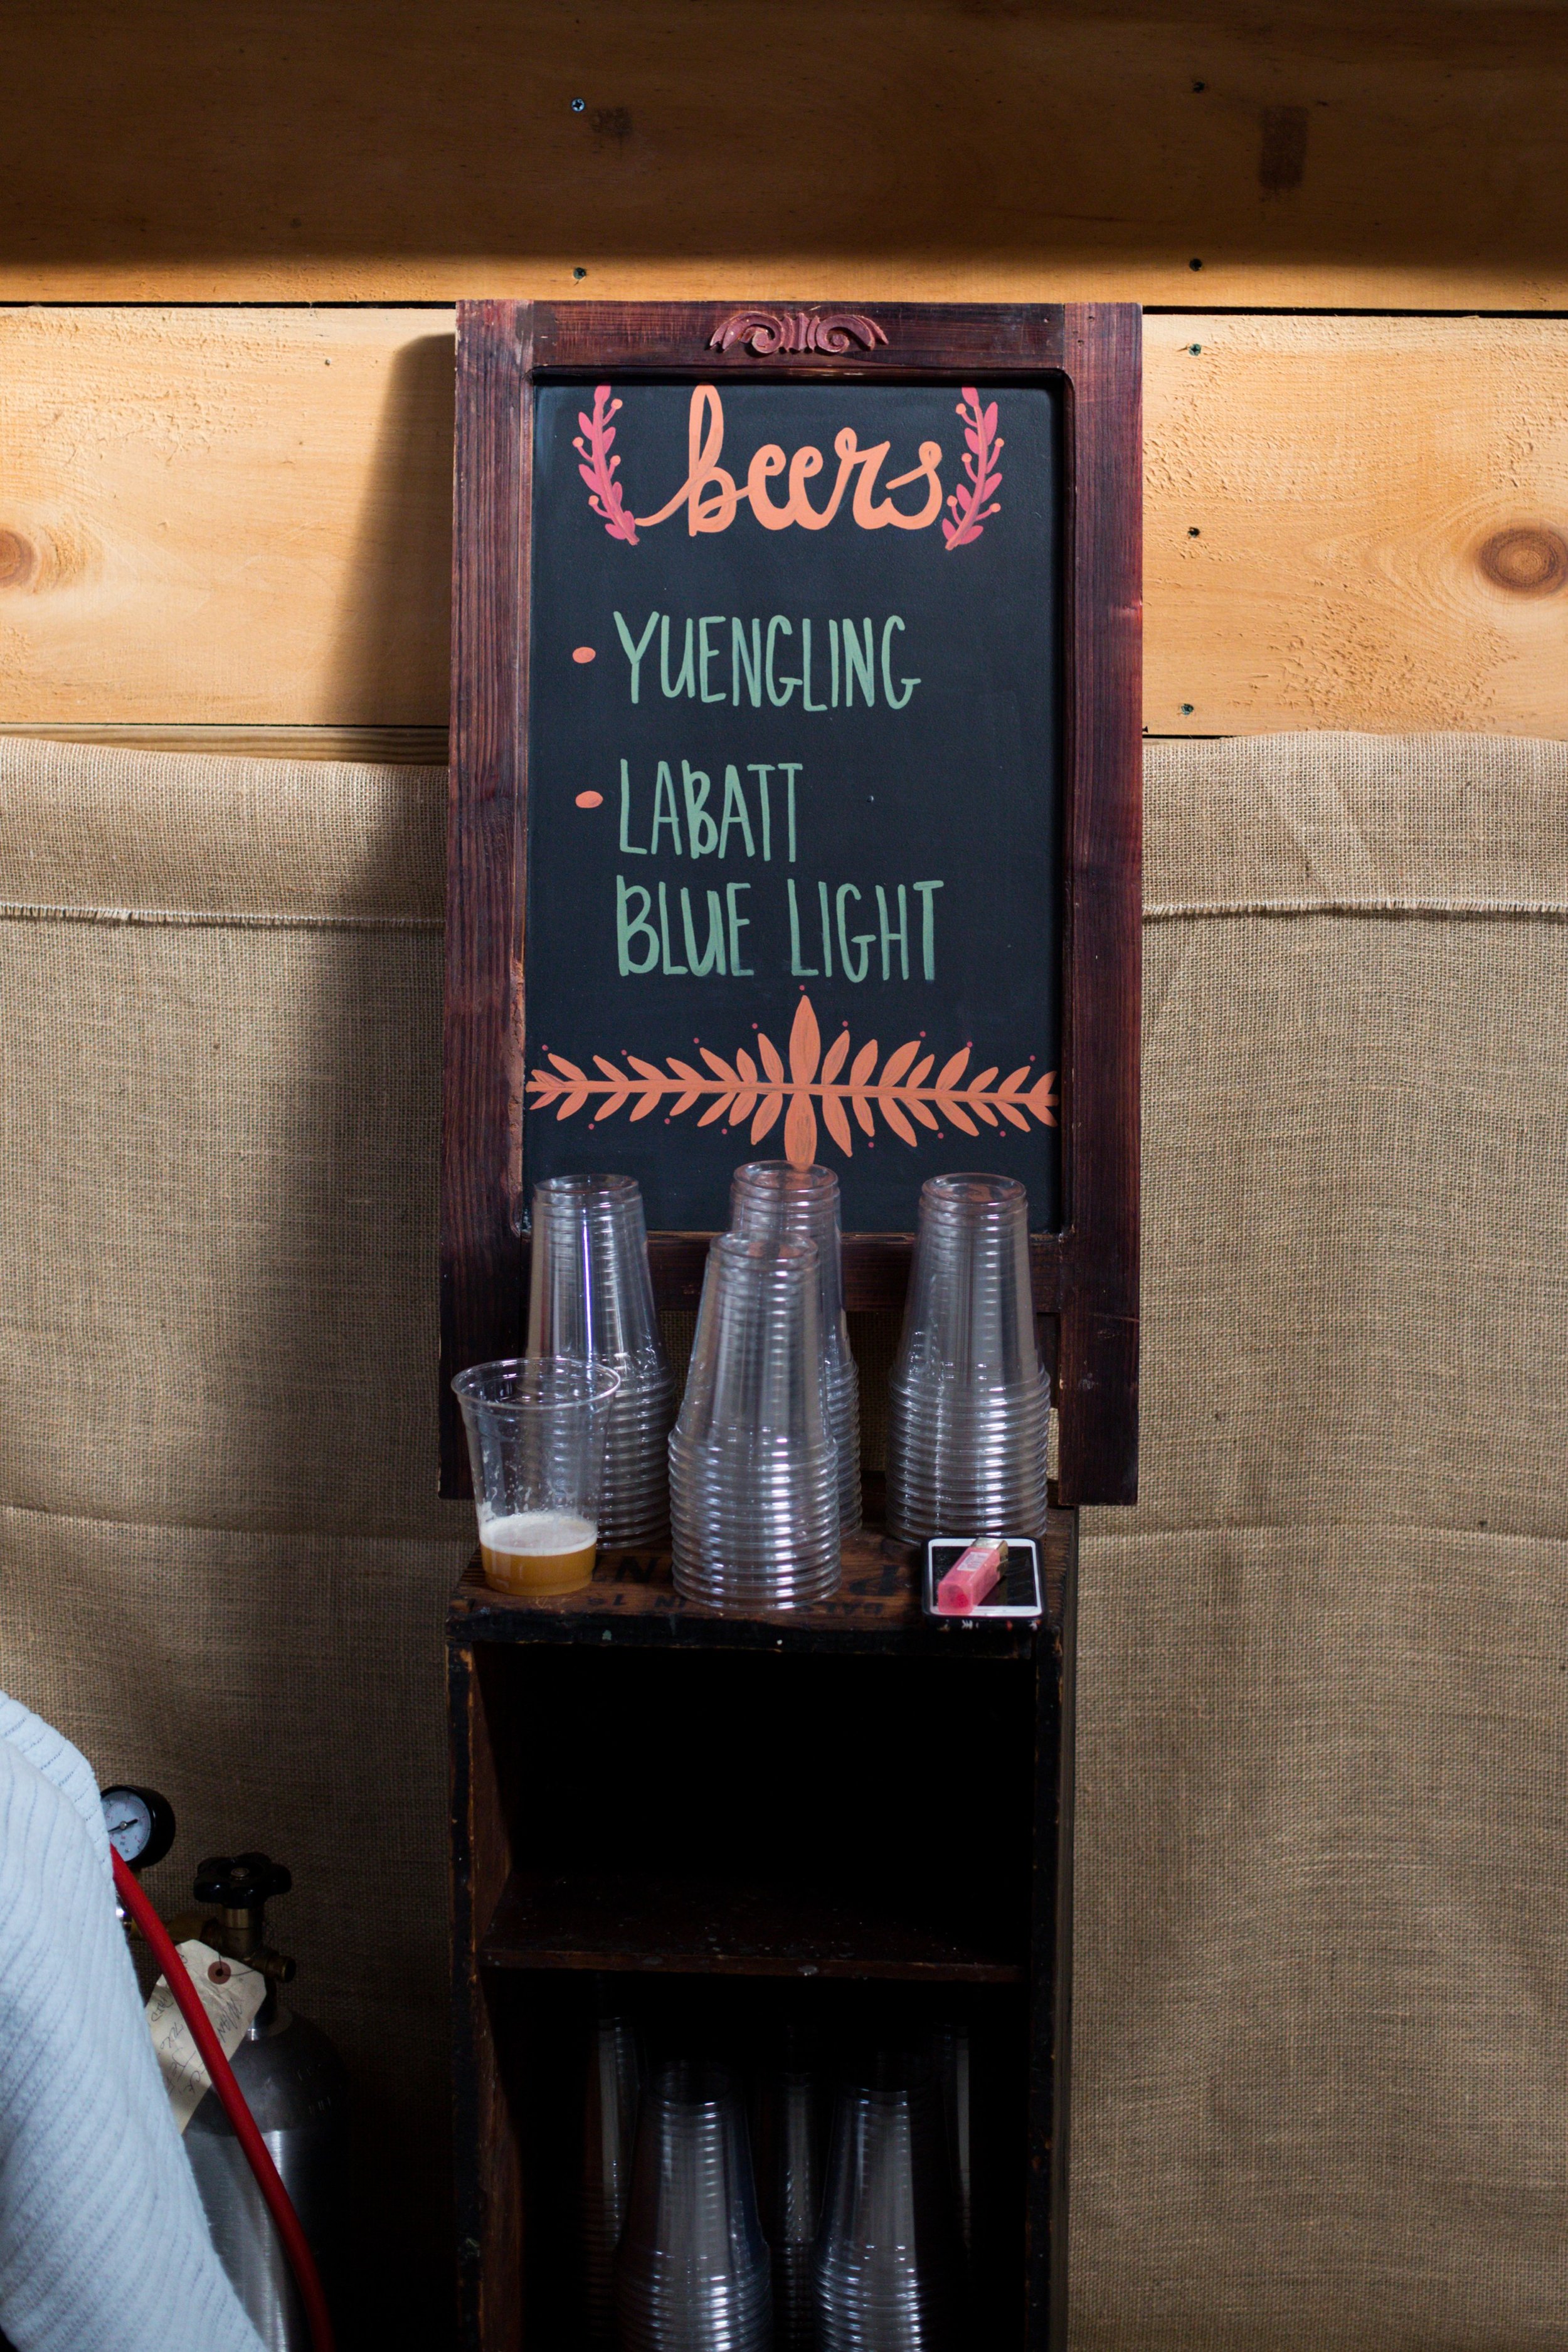 beers
• YUENGLING
• LABATT
BLUE LIGHT